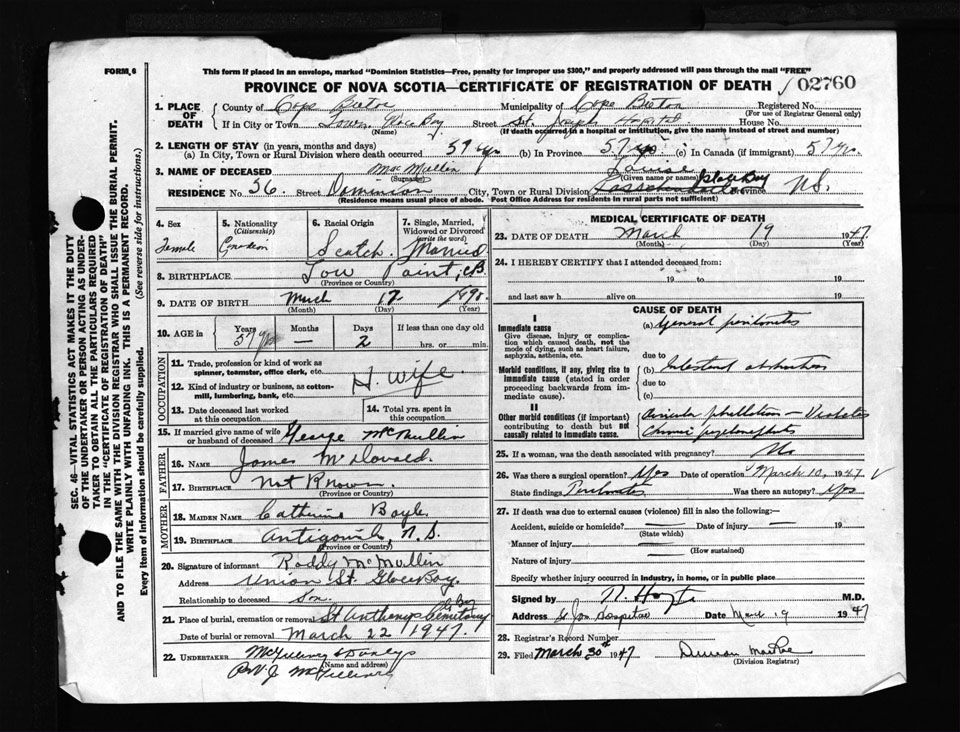 FORM 6
This form if placed in an envelope, marked "Dominion Statistics—Free, penalty for improper use $300," and properly addressed will pass through the mail "FREE"
PROVINCE OF NOVA SCOTIA—CERTIFICATE OF REGISTRATION OF DEATH 02760
1. PLACE OF DEATH { County of Cape Breton Municipality of Cape Breton Registered No.
(For use of Registrar General only)
If in City or Town Town Glace Bay Street St. Joseph Hospital House No.
(Name) (If death occurred in a hospital or institution, give the name instead of street and number)
2. LENGTH OF STAY (in years, months and days)
(a) In City, Town or Rural Division where death occurred 57 yrs (b) In Province 57 yrs (c) In Canada (if immigrant) 57 yrs
3. NAME OF DECEASED Mc Mullin Louise
(Surname) (Given name or names)
RESIDENCE No. 36. Street Dominion City, Town or Rural Division Glace Bay Province N.S.
(Residence means usual place of abode. Post Office Address for residents in rural parts not sufficient)
4. Sex Female
5. Nationality (Citizenship) Canadian
6. Racial Origin Scotch
7. Single, Married, Widowed or Divorced (write the word) Married
8. BIRTHPLACE Low Point, C.B.
(Province or Country)
9. DATE OF BIRTH March 17 1890
(Month) (Day) (Year)
10. AGE in { Years 57 yrs Months — Days 2 If less than one day old
hrs. or min.
OCCUPATION
11. Trade, profession or kind of work as spinner, teamster, office clerk, etc. H. Wife
12. Kind of industry or business, as cotton-mill, lumbering, bank, etc.
13. Date deceased last worked at this occupation
14. Total yrs. spent in this occupation
15. If married give name of wife or husband of deceased George McMullin
FATHER
16. NAME James McDonald
17. BIRTHPLACE Not Known
(Province or Country)
MOTHER
18. MAIDEN NAME Catherine Boyle
19. BIRTHPLACE Antigonish, N.S.
(Province or Country)
20. Signature of informant Roddy McMullin
Address Union St. Glace Bay
Relationship to deceased Son
21. Place of burial, cremation or removal St Anthonys Cemetary
Date of burial or removal March 22 1947
22. UNDERTAKER
(Name and address)
MEDICAL CERTIFICATE OF DEATH
23. DATE OF DEATH March 19 1947
(Month) (Day) (Year)
24. I HEREBY CERTIFY that I attended deceased from:
19 to 19
and last saw h alive on 19
CAUSE OF DEATH
I
Immediate cause
Give disease, injury or complication which caused death, not the mode of dying, such as heart failure, asphyxia, asthenia, etc.
(a) General peritonitis
due to
Morbid conditions, if any, giving rise to immediate cause (stated in order proceeding backwards from immediate cause).
(b) Intestinal obstruction
due to
(c)
II
Other morbid conditions (if important) contributing to death but not causally related to immediate cause.
Chronic
25. If a woman, was the death associated with pregnancy? No
26. Was there a surgical operation? Yes Date of operation March 10, 1947
State findings Peritonitis Was there an autopsy? Yes
27. If death was due to external causes (violence) fill in also the following:—
Accident, suicide or homicide? Date of injury 19
(State which)
Manner of injury
(How sustained)
Nature of injury
Specify whether injury occurred in industry, in home, or in public place
Signed by M.D.
Address St Jos Hospital Date March 19 1947
28. Registrar's Record Number
29. Filed March 30th 1947 Duncan MacRae
(Division Registrar)
SEC. 46—VITAL STATISTICS ACT MAKES IT THE DUTY
OF THE UNDERTAKER OR PERSON ACTING AS UNDERTAKER TO OBTAIN ALL THE PARTICULARS REQUIRED
IN THE "CERTIFICATE OF REGISTRATION OF DEATH"
AND TO FILE THE SAME WITH THE DIVISION REGISTRAR WHO SHALL ISSUE THE BURIAL PERMIT.
WRITE PLAINLY WITH UNFADING INK. THIS IS A PERMANENT RECORD.
Every item of information should be carefully supplied. (See reverse side for instructions.)